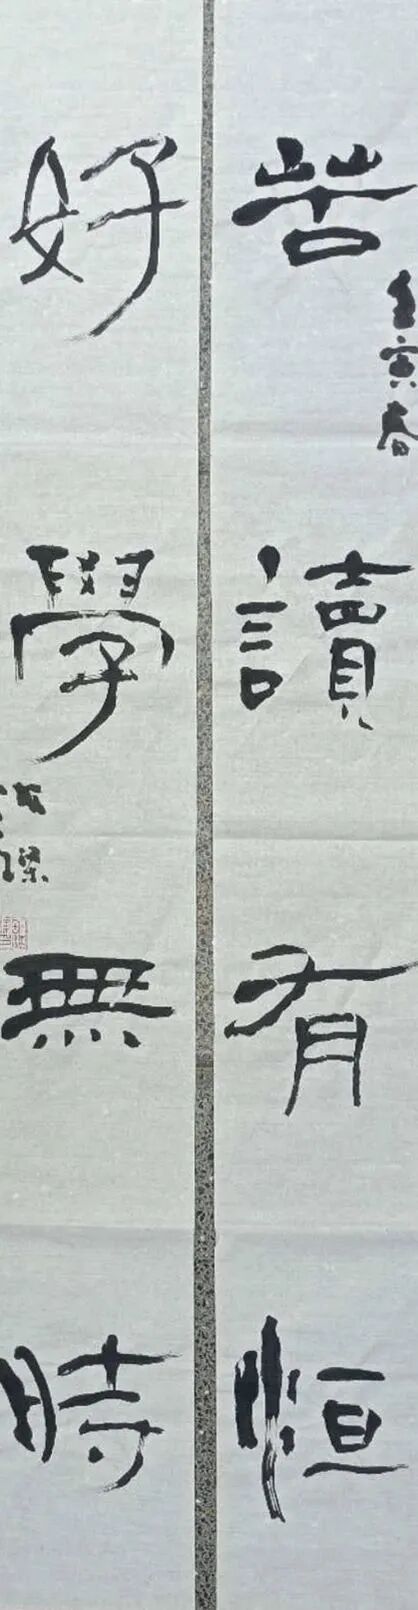 苦讀有恒
壬寅春
好學無時